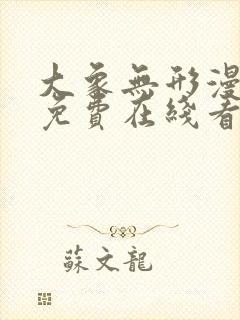 大象無形漫
免費在綫看
蘇文龍